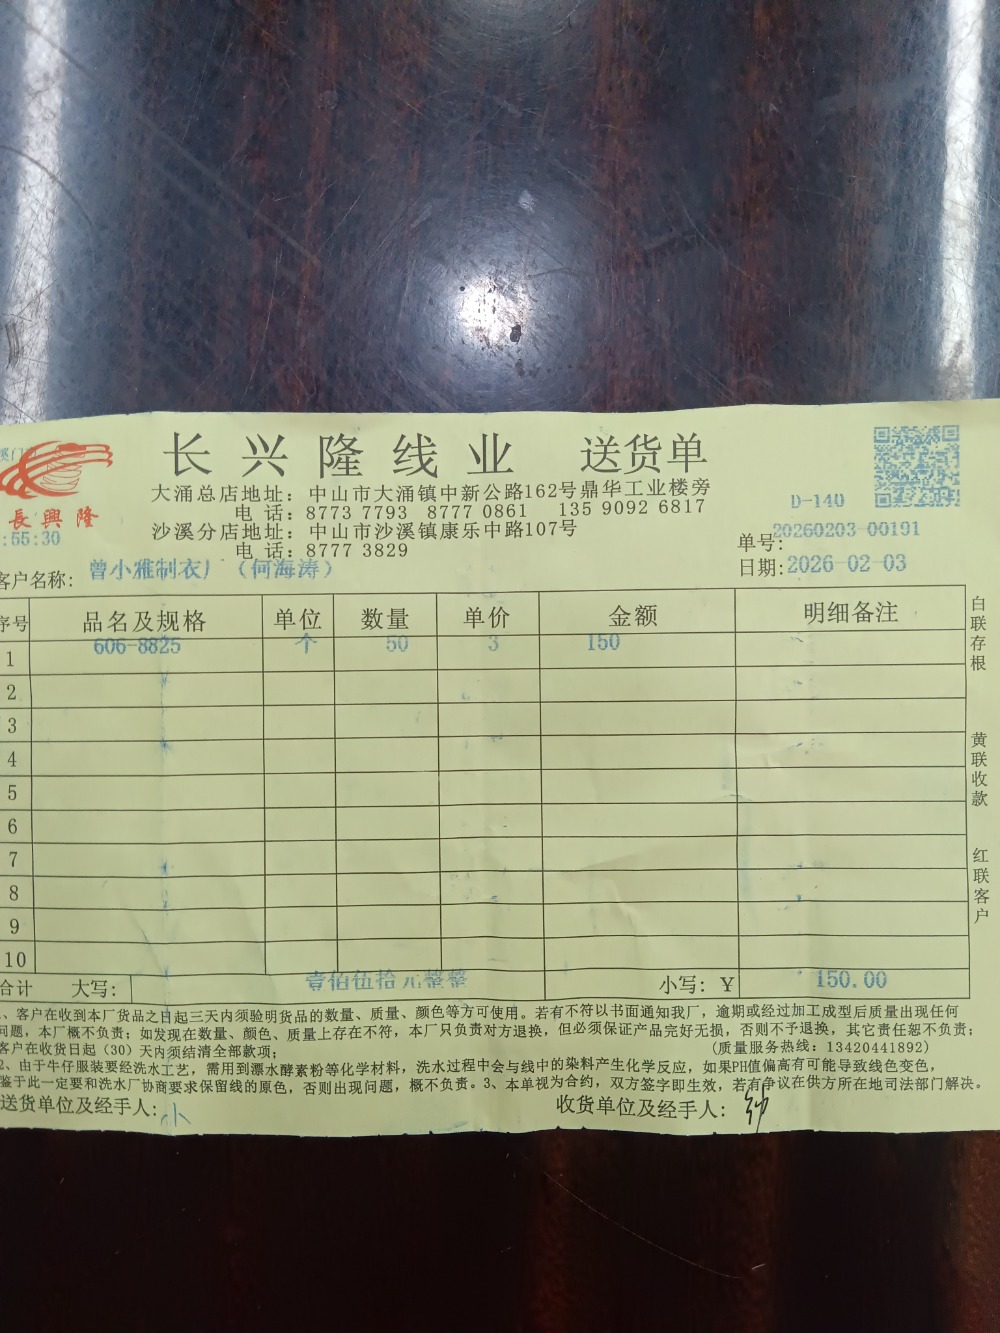 长兴隆线业 送货单
長興隆
:55:30
大涌总店地址：中山市大涌镇中新公路162号鼎华工业楼旁
电 话：8773 7793 8777 0861 135 9092 6817
沙溪分店地址：中山市沙溪镇康乐中路107号
电 话：8777 3829
D-140
单号：20260203-00191
日期：2026-02-03
客户名称：曾小雅制衣厂（何海涛）
序号 品名及规格 单位 数量 单价 金额 明细备注
1 606-8825 个 50 3 150
2
3
4
5
6
7
8
9
10
合计 大写：壹佰伍拾元整整 小写：￥ 150.00
白联存根
黄联收款
红联客户
、客户在收到本厂货品之日起三天内须验明货品的数量、质量、颜色等方可使用。若有不符以书面通知我厂，逾期或经过加工成型后质量出现任何
问题，本厂概不负责；如发现在数量、颜色、质量上存在不符，本厂只负责对方退换，但必须保证产品完好无损，否则不予退换，其它责任恕不负责；
客户在收货日起（30）天内须结清全部款项； (质量服务热线：13420441892)
2、由于牛仔服装要经洗水工艺，需用到漂水酵素粉等化学材料，洗水过程中会与线中的染料产生化学反应，如果PH值偏高有可能导致线色变色，
鉴于此一定要和洗水厂协商要求保留线的原色，否则出现问题，概不负责。3、本单视为合约，双方签字即生效，若有争议在供方所在地司法部门解决。
送货单位及经手人：小
收货单位及经手人：